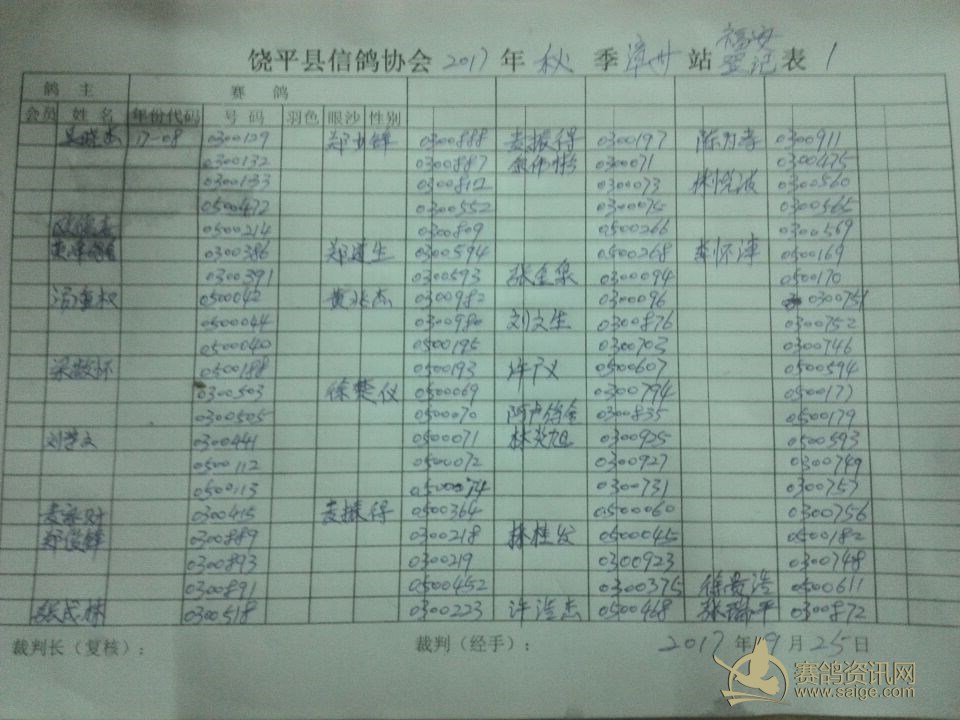 饶平县信鸽协会 2017 年 秋 季 漳州 站 登记 表 1
福安
鸽 主 赛 鸽
会员 姓 名 年份代码 号 码 羽色 眼沙 性别
17-08 0300129 0300888 麦振得 0300197 0300911
0300132 0300887 0300071 0300475
0300133 0300812 0300073 0300560
0500472 0300552 0300075 0300565
0500214 0300809 0500266 0300569
0300386 郑建生 0300594 0500268 李怀泽 0500169
0300391 0300593 张金泉 0300094 0500170
0500042 黄水杰 0300982 0300096 0300751
0500044 0300980 刘文生 0300876 0300752
0500040 0500195 0300703 0300746
0500188 0500193 许广义 0500607 0500594
0300503 徐楚仪 0500069 0300794 0500177
0300505 0500070 0300835 0500179
0300441 0500071 林炎旭 0300925 0500593
0500112 0500072 0300927 0300749
0500113 0500074 0300731 0300757
0300415 麦振得 0500364 0500060 0300756
郑俊锋 0300889 0300218 林桂发 0500045 0500182
0300893 0300219 0300923 0300748
0300891 0500452 0300375 徐贵浩 0500611
张民林 0300518 0300223 许浩杰 0500468 0300872
裁判长（复核）： 裁判（经手）： 2017 年 9 月 25 日
赛鸽资讯网
www.saige.com